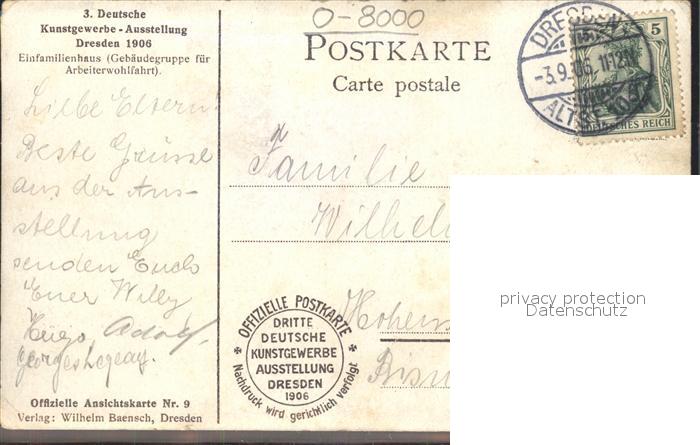 3. Deutsche
Kunstgewerbe-Ausstellung
Dresden 1906
Einfamilienhaus (Gebäudegruppe für
Arbeiterwohlfahrt).
O-8000
POSTKARTE
Carte postale
DRESDEN
-3.9.06. 11-12
ALTST.
5
DEUTSCHES REICH
Liebe Eltern!
Beste Grüsse
aus der Aus-
stellung
senden Euch
Euer Willy
Hugo, Adolf,
Familie
Wilhel
Hohens
Bism
OFFIZIELLE POSTKARTE
DRITTE
DEUTSCHE
KUNSTGEWERBE
AUSSTELLUNG
DRESDEN
1906
Nachdruck wird gerichtlich verfolgt
Offizielle Ansichtskarte Nr. 9
Verlag: Wilhelm Baensch, Dresden
privacy protection
Datenschutz